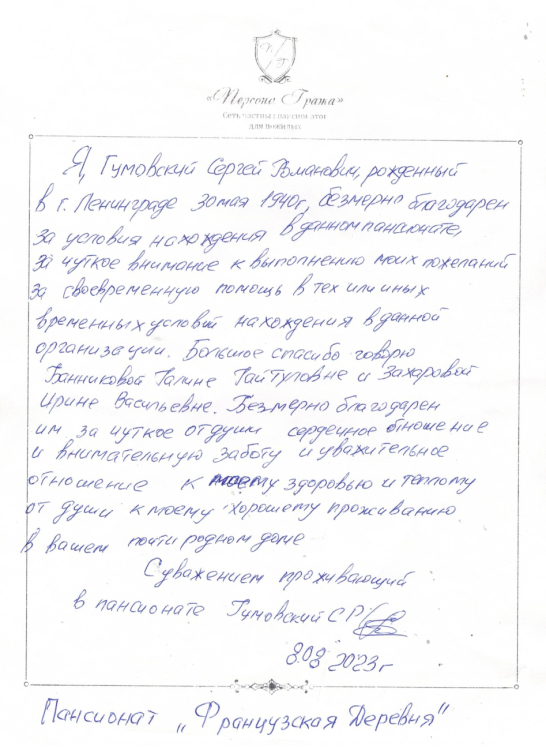 П Г
«Персона Гража»
Сеть частных пансионатов
для пожилых
Я, Гумовский Сергей Романович, рожденный
в г. Ленинграде 30 мая 1940г, безмерно благодарен
за условия нахождения в данном пансионате,
за чуткое внимание к выполнению моих пожеланий
за своевременную помощь в тех или иных
временных условий нахождения в данной
организации. Большое спасибо говорю
Банниковой Галине Гайтуловне и Захаровой
Ирине Васильевне. Безмерно благодарен
им за чуткое от души сердечное отношение
и внимательную заботу и уважительное
отношение к моему здоровью и теплому
от души к моему хорошему проживанию
в вашем почти родном доме
С уважением проживающий
в пансионате Гумовский С Р
8.08 2023г
Пансионат „Французская Деревня"